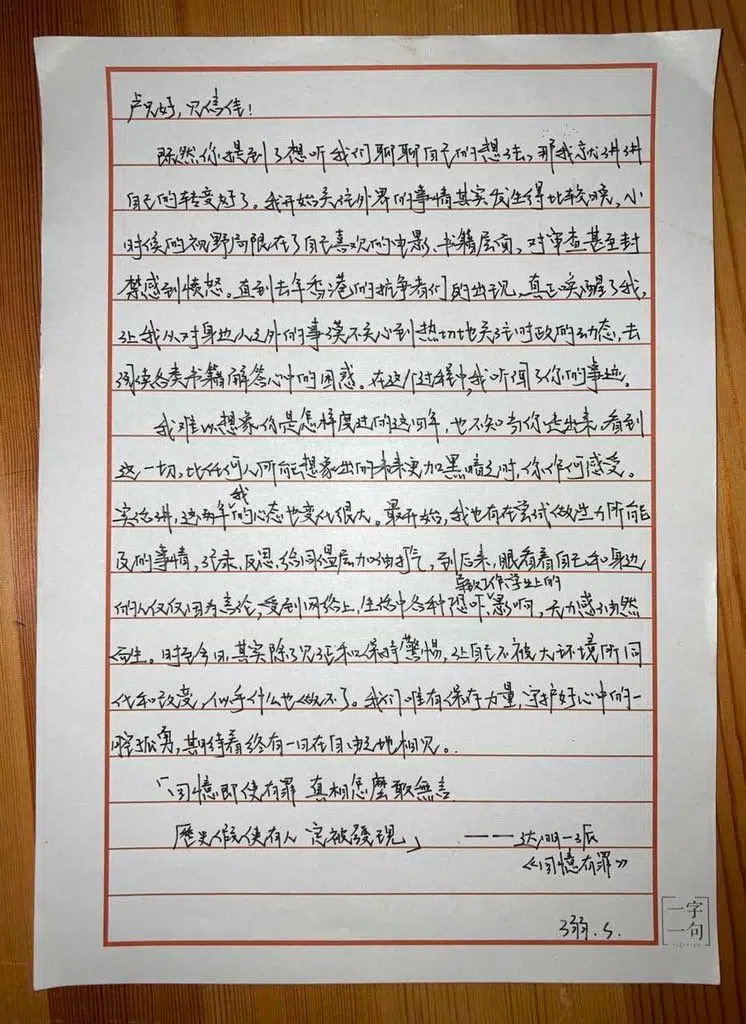 卢兄好，见信佳！
既然你提到了想听我们聊聊自己的想法，那我就讲讲
自己的转变好了。我开始关注外界的事情其实发生得比较晚，小
时候的视野局限在了自己喜欢的电影、书籍层面，对审查甚至封
禁感到愤怒。直到去年香港的抗争者们的出现，真正唤醒了我，
让我从对身边人之外的事漠不关心到热切地关注时政的动态，去
阅读各类书籍解答心中的困惑。在这个过程中，我听闻了你的事迹。
我难以想象你是怎样度过的这四年，也不知当你走出来，看到
这一切，比任何人所能想象出的未来更加黑暗之时，你作何感受。
实话讲，这两年我的心态也变化很大。最开始，我也有在尝试做些力所能
及的事情，记录、反思、给同温层加油打气，到后来，眼看着自己和身边
的人仅仅因为言论，受到网络上，生活中各种恐吓、导致工作学业上的影响，无力感油然
而生。时至今日，其实除了见证和保持警惕，让自己不被大环境所同
化和改变，似乎什么也做不了。我们唯有保存力量，守护好心中的一
腔孤勇，期待着终有一日在自由之地相见。
「回憶即使有罪 真相怎麼敢無言
歷史假使有人 完被發現」 ——达明一派
《回憶有罪》
溺.S.
一字
一句